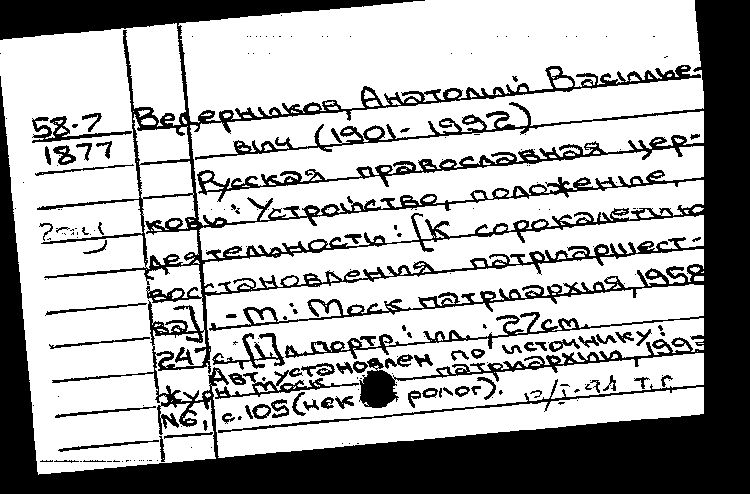 58-7
1877
Ведерников, Анатолий Василье-
вич (1901-1992)
Русская православная цер-
ковь: Устройство, положение,
деятельность: [К сорокалетию
восстановления патриаршест-
ва]. - М.: Моск. патриархия, 1958
247 с., [1] л. портр.: ил.; 27см.
Авт. установлен по источнику:
Журн. Моск. патриархии, 1993
N6, с.105 (нек ролог).